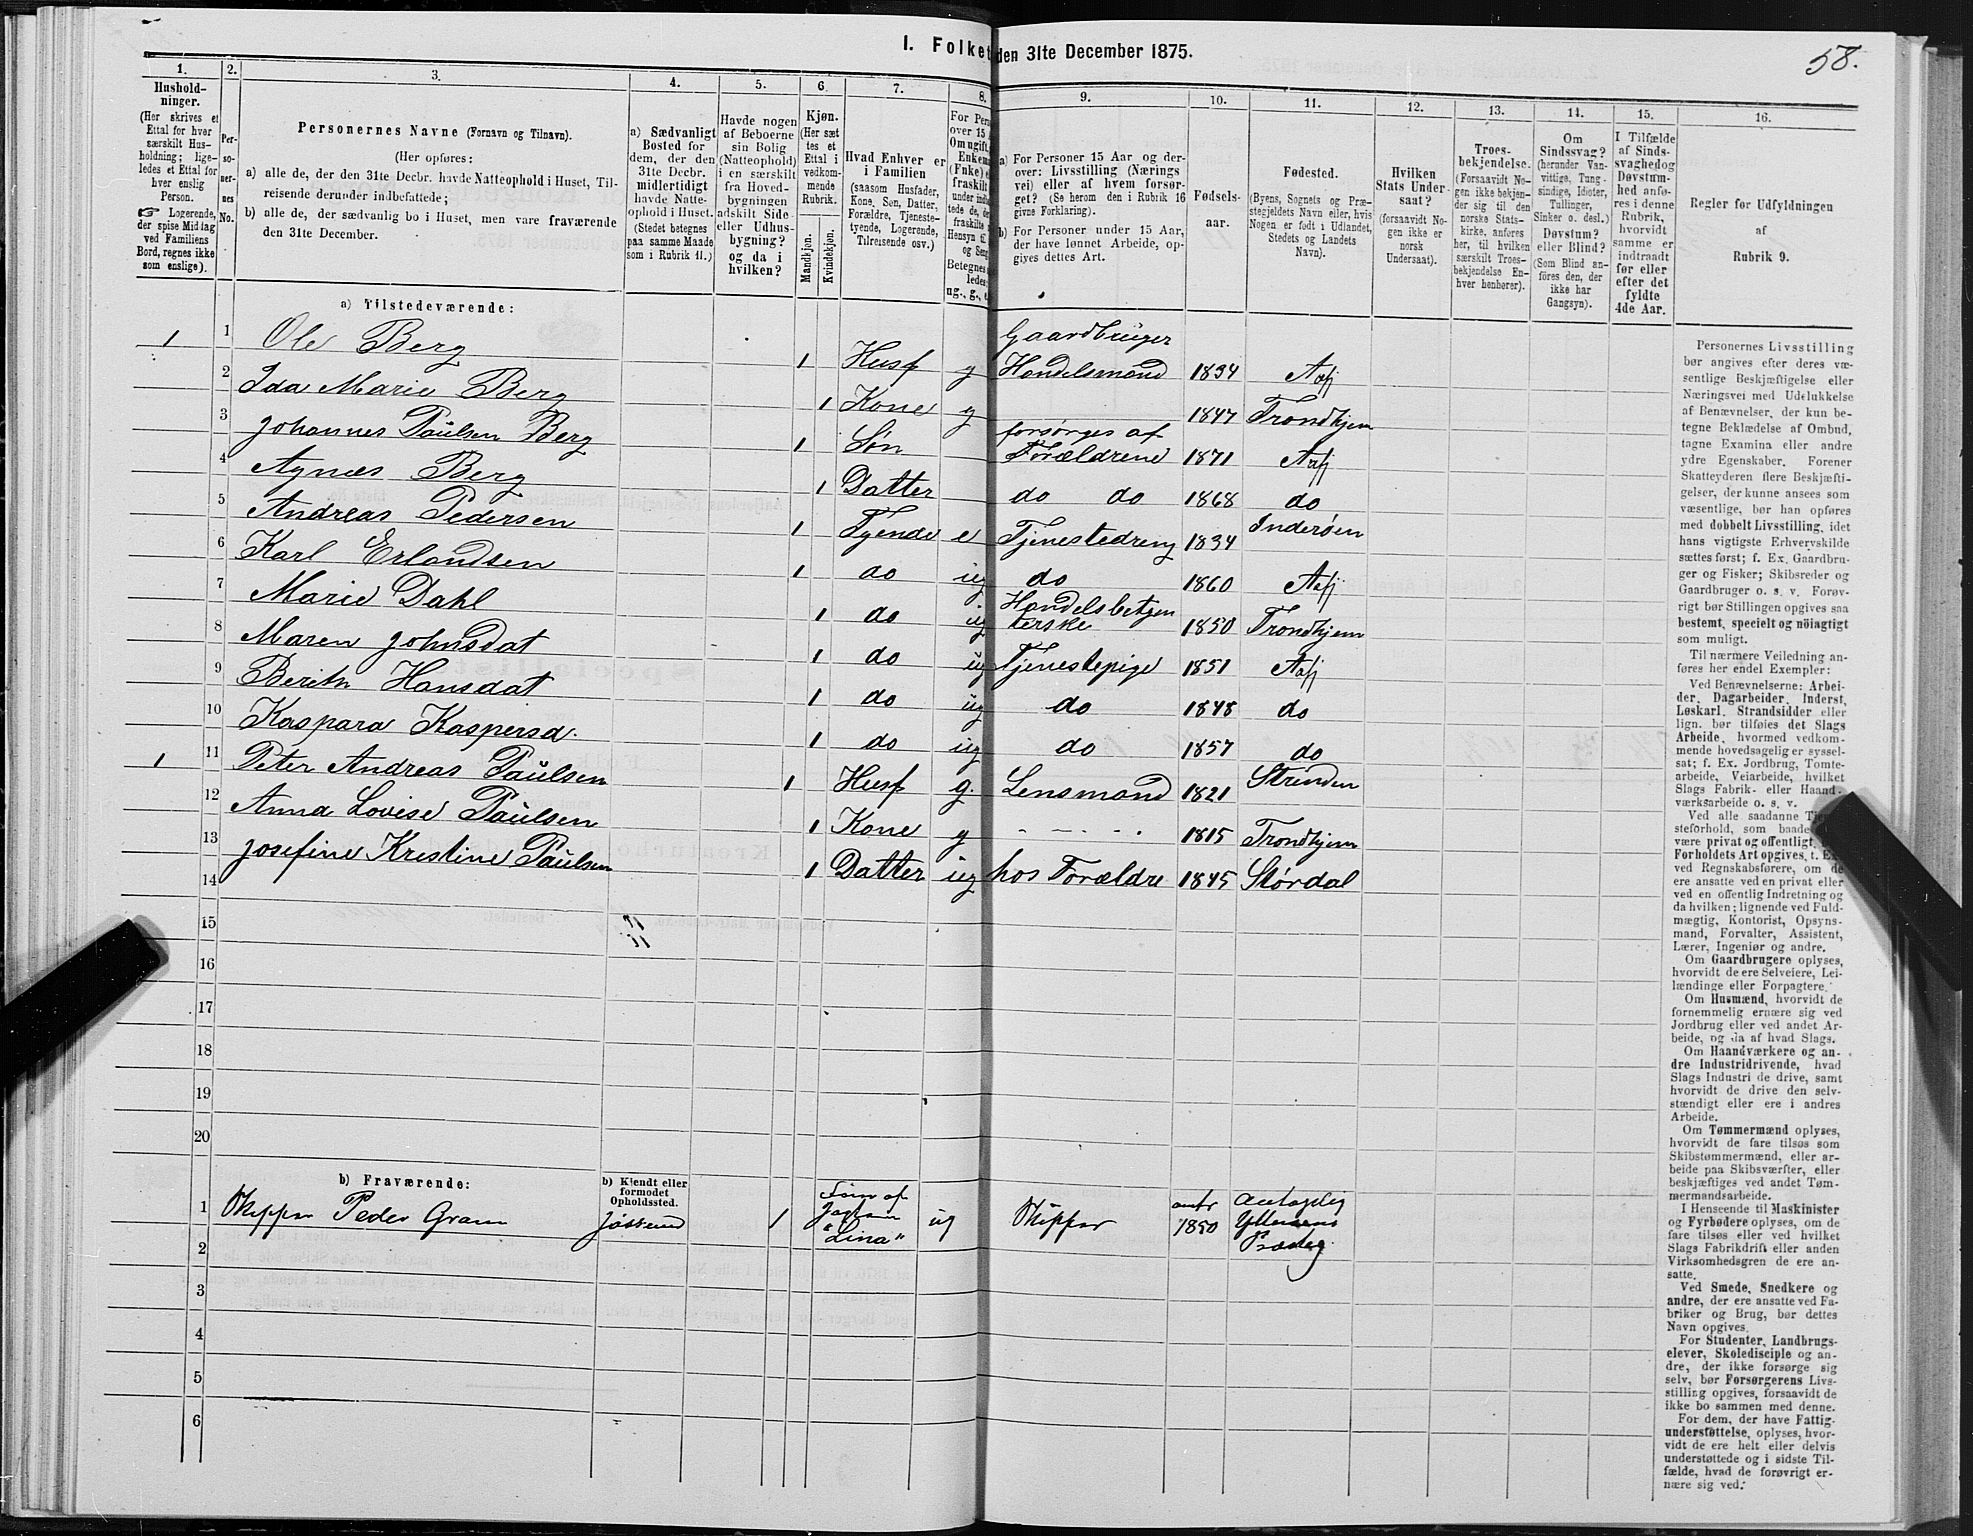 I. Folket den 31te December 1875.
58.
1. 2. 3. 4. 5. 6. 7. 8. 9. 10. 11. 12. 13. 14. 15. 16.
Hushold-
ninger.
(Her skrives et
Ettal for hver
særskilt Hus-
holdning; lige-
ledes et Ettal for
hver enslig
Person.
☞ Logerende,
der spise Middag
ved Familiens
Bord, regnes ikke
som enslige).
Per-
so-
ner-
nes
No.
Personernes Navne (Fornavn og Tilnavn).
(Her opføres:
a) alle de, der den 31te Decbr. havde Natteophold i Huset, Til-
reisende derunder indbefattede;
b) alle de, der sædvanlig bo i Huset, men vare fraværende
den 31te December.
a) Sædvanligt
Bosted for
dem, der den
31te Decbr.
midlertidigt
havde Natte-
ophold i Huset.
(Stedet betegnes
paa samme Maade
som i Rubrik 11.)
Havde nogen
af Beboerne
sin Bolig
(Natteophold)
i en særskilt
fra Hoved-
bygningen
adskilt Side-
eller Udhus-
bygning?
og da i
hvilken?
Kjøn.
(Her sæt
tes et
Ettal i
vedkom-
mende
Rubrik.
Mandkjøn.
Kvindekjøn.
Hvad Enhver er
i Familien
(saasom Husfader,
Kone, Søn, Datter,
Forældre, Tjeneste-
tyende, Logerende,
Tilreisende osv.)
For Pers
over 15 A
Om ugift,
Enkem
(Fnke) e
fraskilt
a) For Personer 15 Aar og der-
over: Livsstilling (Nærings
vei) eller af hvem forsør-
get? (Se herom den i Rubrik 16
givne Forklaring).
b) For Personer under 15 Aar,
der have lønnet Arbeide, op-
gives dettes Art.
Fødsels-
aar.
Fødested.
(Byens, Sognets og Præ-
stegjeldets Navn eller, hvis
Nogen er født i Udlandet,
Stedets og Landets
Navn).
Hvilken
Stats Under-
saat?
(forsaavidt No-
gen ikke er
norsk
Undersaat).
Troes-
bekjendelse.
(Forsaavidt No-
gen ikke bekjen-
der sig til den
norske Stats-
kirke, anføres
her, til hvilken
særskilt Troes-
bekjendelse En-
hver henhører).
Om
Sindssvag?
(herunder Van-
vittige, Tung-
sindige, Idioter,
Tullinger,
Sinker o. desl.)
Døvstum?
eller Blind?
(Som Blind an-
føres den, der
ikke har
Gangsyn).
I Tilfælde
af Sinds-
svaghed og
Døvstum-
hed anfø-
res i denne
Rubrik,
hvorvidt
samme er
indtraadt
før eller
efter det
fyldte
4de Aar.
Regler for Udfyldningen
af
Rubrik 9.
a) Tilstedeværende:
1 1 Ole Berg 1 Husf g Gaardbruger Handelsmand 1834 Aafj
2 Ida Marie Berg 1 Kone g 1847 Trondhjem
3 Johannes Paulsen Berg 1 Søn forsørges af Forældrene 1871 Aafj
4 Agnæs Berg 1 Datter do do 1868 do
5 Andreas Pedersen 1 Tyende e Tjenestedreng 1834 Inderøen
6 Karl Erlandsen 1 do ug do 1860 Aafj
7 Marie Dahl 1 do ug Handelsbetjenterske 1850 Trondhjem
8 Maren Johnsdat 1 do ug Tjenestepige 1851 Aafj
9 Berith Hansdat 1 do ug do 1848 do
10 Kaspara Kaspersd. 1 do ug do 1857 do
1 11 Peter Andreas Paulsen 1 Husf g. Lensmand 1821 Strinden
12 Anna Lovise Paulsen 1 Kone g 1815 Trondhjem
13 Josefine Kristine Paulsen 1 Datter ug hos Forældre 1845 Størdal
14
15
16
17
18
19
20
b) Fraværende:
b) Kjendt eller
formodet
Opholdssted.
1 Skipper Peder Gram Jøssund 1 "Lina" ug Skipper antr 1850
2
3
4
5
6
Personernes Livsstilling
bør angives efter deres væ-
sentlige Beskjæftigelse eller
Næringsvei med Udelukkelse
af Benævnelser, der kun be-
tegne Beklædelse af Ombud,
tagne Examina eller andre
ydre Egenskaber. Forener
Skatteyderen flere Beskjæfti-
gelser, der kunne ansees som
væsentlige, bør han opføres
med dobbelt Livsstilling, idet
hans vigtigste Erhvervskilde
sættes først; f. Ex. Gaardbru-
ger og Fisker; Skibsreder og
Gaardbruger o. s. v. Forøv-
rigt bør Stillingen opgives saa
bestemt, specielt og nöiagtigt
som muligt.
Til nærmere Veiledning an-
føres her endel Exempler:
Ved Benævnelserne: Arbei-
der, Dagarbeider, Inderst,
Løskarl, Strandsidder eller
lign. bør tilføies det Slags
Arbeide, hvormed vedkom-
mende hovedsagelig er syssel-
sat; f. Ex. Jordbrug, Tomte-
arbeide, Veiarbeide, hvilket
Slags Fabrik- eller Haand-
værksarbeide o. s. v.
Ved alle saadanne
steforhold, som baade
være privat og offentligt,
Forholdets Art opgives, t. Ex.
ved Regnskabsførere, om de
ere ansatte ved en privat eller
ved en offentlig Indretning og
da hvilken; lignende ved Fuld-
mægtig, Kontorist, Opsyns-
mand, Forvalter, Assistent,
Lærer, Ingeniør og andre.
Om Gaardbrugere oplyses,
hvorvidt de ere Selveiere, Lei-
lændinge eller Forpagtere.
Om Husmænd, hvorvidt de
fornemmelig ernære sig ved
Jordbrug eller ved andet Ar-
beide, og da af hvad Slags.
Om Haandværkere og an-
dre Industridrivende, hvad
Slags Industri de drive, samt
hvorvidt de drive den selv-
stændigt eller ere i andres
Arbeide.
Om Tømmermænd oplyses,
hvorvidt de fare tilsøs som
Skibstømmermænd, eller ar-
beide paa Skibsværfter, eller
beskjæftiges ved andet Tøm-
mermandsarbeide.
I Henseende til Maskinister
og Fyrbødere oplyses, om de
fare tilsøs eller ved hvilket
Slags Fabrikdrift eller anden
Virksomhedsgren de ere an-
satte.
Ved Smede, Snedkere og
andre, der ere ansatte ved Fa-
briker og Brug, bør dettes
Navn opgives.
For Studenter, Landbrugs-
elever, Skoledisciple og an-
dre, der ikke forsørge sig
selv, bør Forsørgerens Livs-
stilling opgives, forsaavidt de
ikke bo sammen med denne.
For dem, der have Fattig-
understøttelse, oplyses, hvor-
vidt de ere helt eller delvis
understøttede og i sidste Til-
fælde, hvad de forøvrigt er-
nære sig ved.